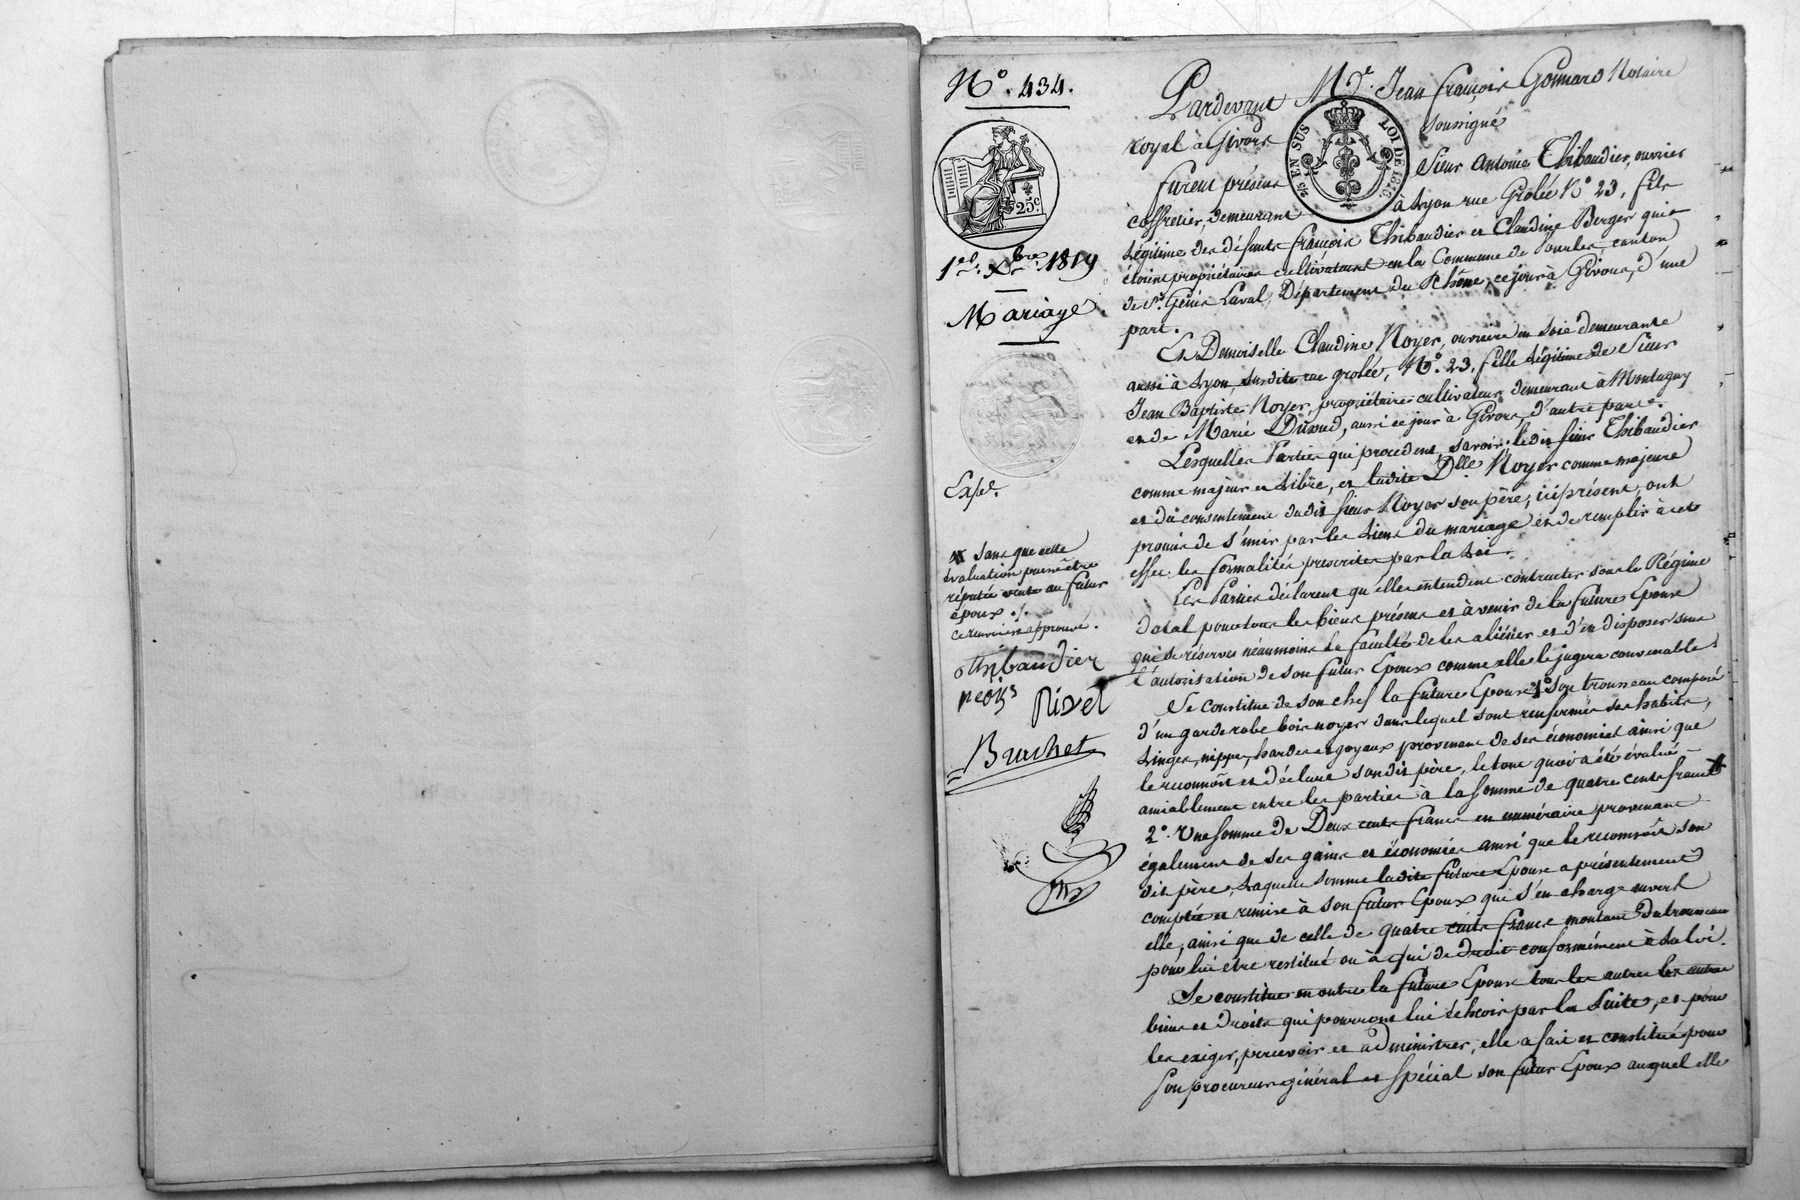 N.o 434.
25c.
1er. Xbre. 1819
Mariage
Expé.
sans que cette
évaluation puisse être
réputée vente au futur
époux ./.
ce renvoi approuvé.
Thybaudier
Rivet
Bruchet
Pardevant Me. Jean françois Goinard Notaire
royal à Givors soussigné
2/5 EN SUS LOI DE 1816.
furent présens Sieur Antoine Thibaudier, ouvrier
coffretier, demeurant à Lyon rue Grolée No. 23, fils
Légitime des défunts françois Thibaudier et Claudine Berger qui
étoient propriétaires cultivateurs en la Commune de Vourles, canton
de St. Genis Laval, Département du Rhône, ce jour à Givors, d'une
part.
Et Demoiselle Claudine Noyer, ouvrière en soie demeurante
aussi à Lyon, susdite rue grolée, No. 23, fille légitime de Sieur
Jean Baptiste Noyer, propriétaire cultivateur demeurant à Montagny
et de Marie , aussi ce jour à Givors, d'autre part.
Lesquelles Parties qui procèdent, savoir: ledit sieur Thibaudier
comme majeur et libre, et ladite Dlle Noyer comme majeure
et du consentement dudit sieur Noyer son père, ici présent, ont
promis de s'unir par les liens du mariage et de remplir à cet
effet les formalités prescrites par la Loi.
Les Parties déclarent qu'elles entendent contracter sous le Régime
dotal pour tous les biens présens et à venir de la future Epouse
qui se réserve néanmoins la faculté de les aliéner et d'en disposer sous
l'autorisation de son futur Epoux comme elle le jugera convenable.
Se constitue de son chef la future Epouse, 1o son trousseau composé
d'un garderobe bois noyer dans lequel sont renfermés ses habits,
Linges, nippes, hardes et joyaux provenant de ses économies ainsi que
le reconnoît et déclare sondit père, le tout quoi a été évalué
amiablement entre les parties à la somme de quatre cents francs
2o. Une somme de Deux cents francs en numéraire provenant
également de ses gains et économies ainsi que le reconnoît son
dit père, Laquelle somme ladite future Epouse a présentement
comptée et remise à son futur Epoux qui s'en charge envers
elle, ainsi que de celle de quatre cents francs montant du trousseau
pour lui être restitué ou à qui de droit conformément à la loi.
Se constitue en outre la future Epouse tous les autres les autres
biens et droits qui pourront lui échoir par la suite, et pour
les exiger, percevoir et administrer, elle a fait et constitué pour
son procureur général et spécial son futur Epoux auquel elle